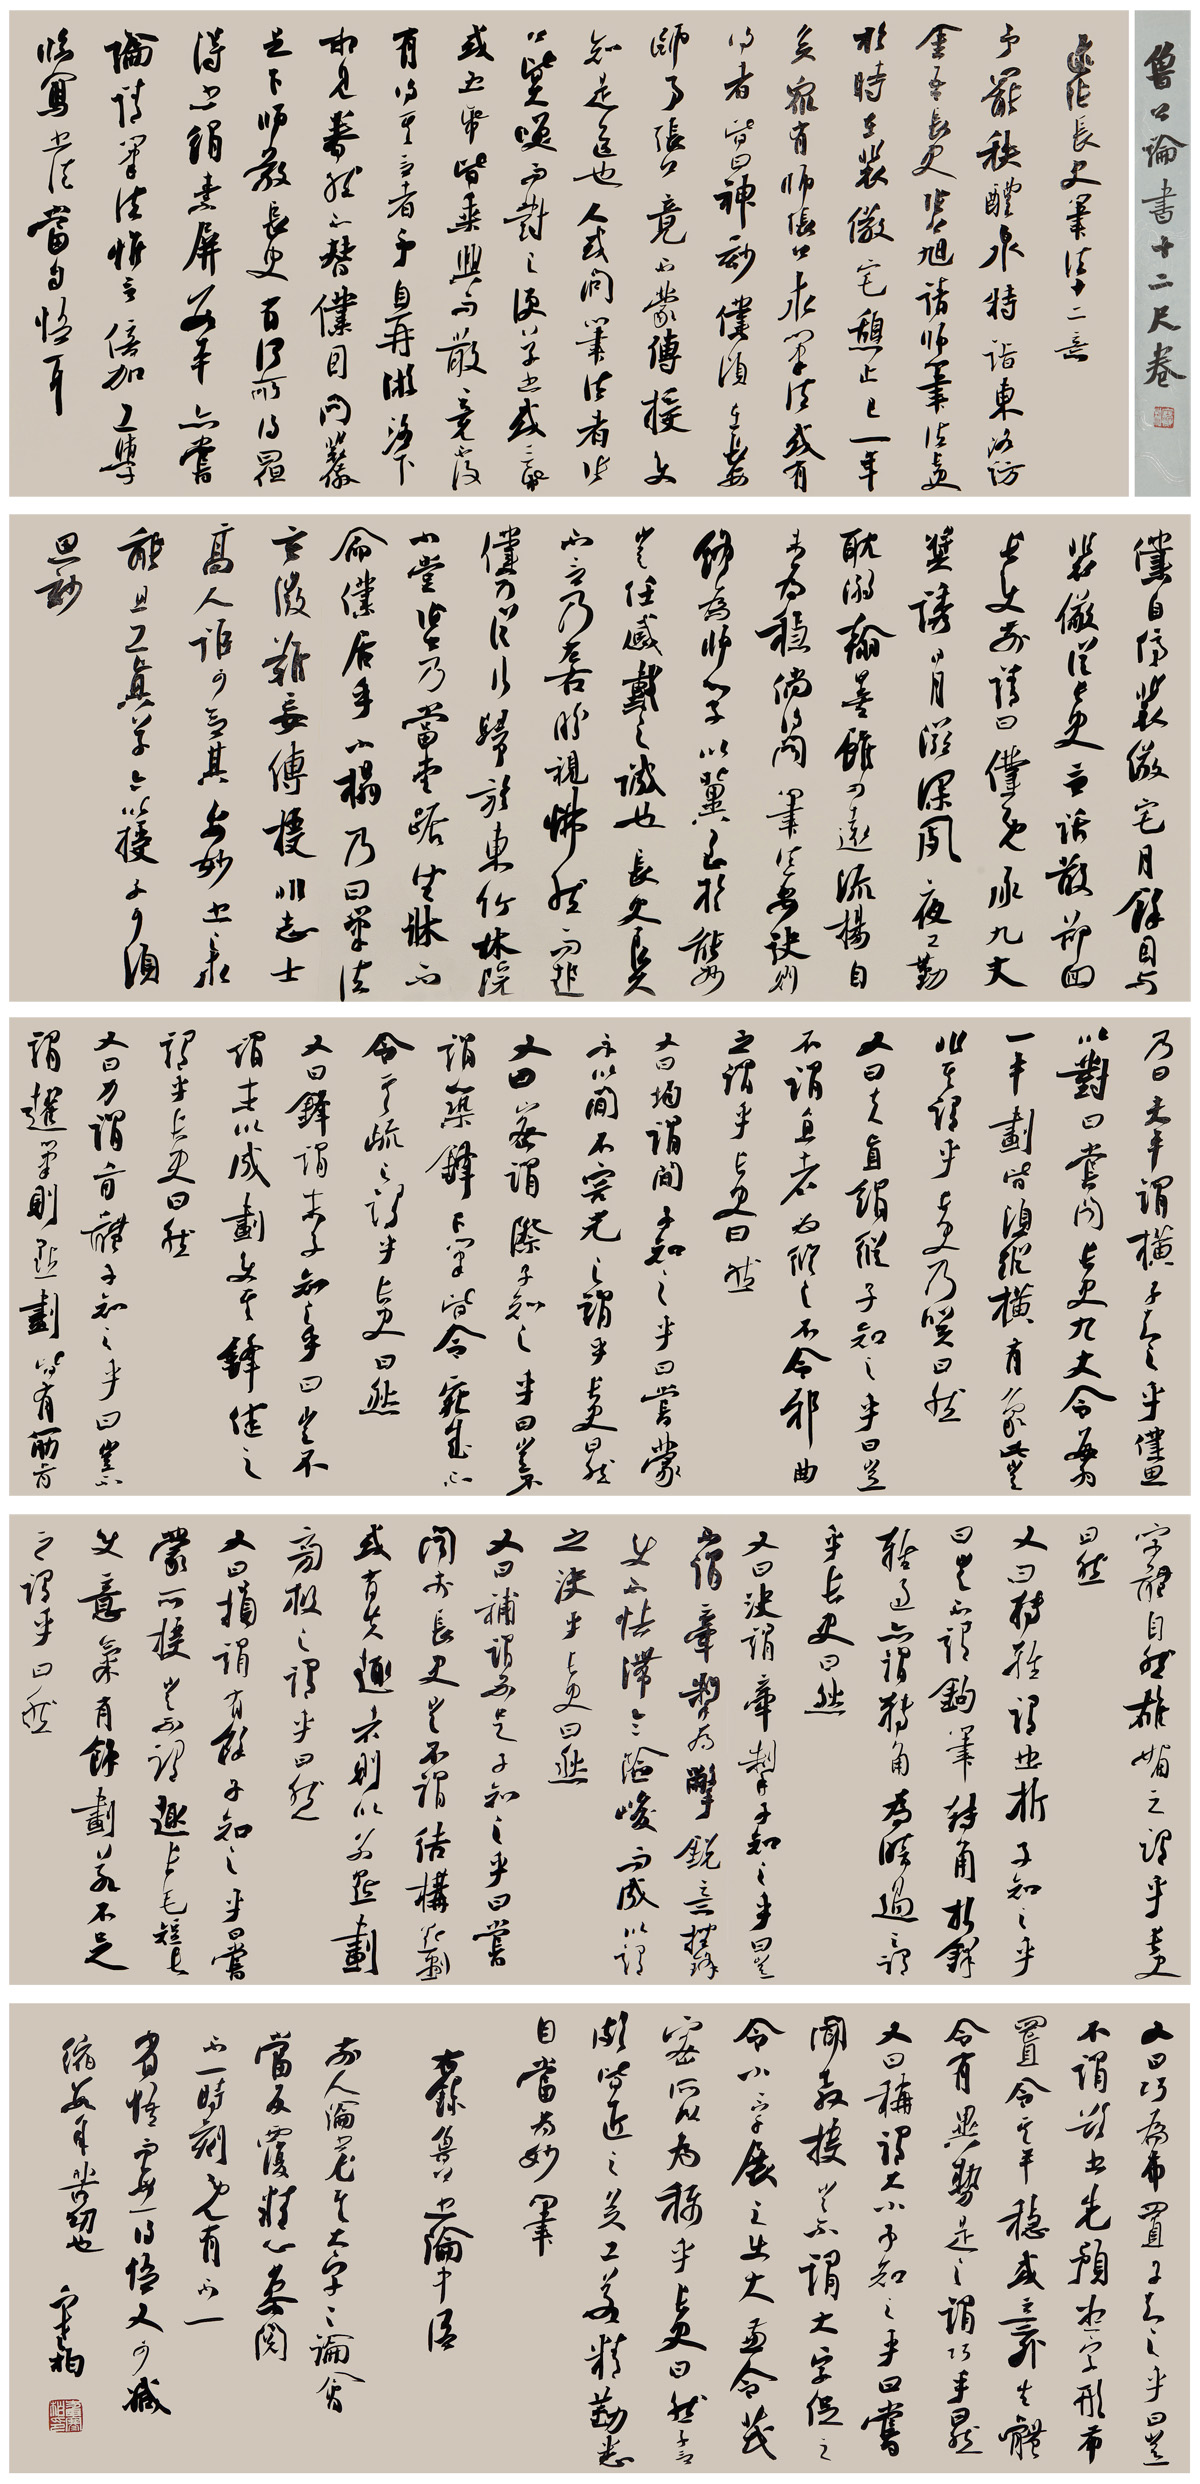 魯公論書十二尺卷
述張長史筆法十二意
予罷秩醴泉特詣東洛訪
金吾長史張旭請師筆法長史
於時在裴儆宅憩止已一年
矣眾有師張公求筆法或有
得者皆曰神妙僕頃在長安
師事張公竟不蒙傳授使
知是道也人或問筆法者張
公皆大笑而對之便草書或三紙
或五紙皆乘興而散竟不復
有得其言者予自再游洛下
相見眷然不替僕因問裴儆
足下師敬長史有何所得曰但
得書絹素屏數本亦嘗
論請筆法惟言倍加工學
臨寫書法當自悟耳
僕自停裴儆宅月餘因與
裴儆從長史言話散卻回
長史前請曰僕既承九丈
獎誘日月滋深夙夜工勤
耽溺翰墨雖四遠流揚自
未為穩倘得聞筆法要訣則
終為師學以冀至於能妙
豈任感戴之誠也長史良久
不言乃左右眄視怫然而起
僕乃從行歸於東竹林院
小堂張公乃當堂踞坐床而
命僕居乎小榻乃曰筆法
玄微難妄傳授非志士
高人詎可言其要妙書之求
能且工真草今以授子可須
思妙
乃曰夫平謂橫子知之乎僕思
以對曰嘗聞長史九丈令每為
一平劃皆須縱橫有象此豈
非其謂乎長史乃笑曰然
又曰夫直謂縱子知之乎曰豈
不謂直者為縱之不令邪曲
之謂乎長史曰然
又曰均謂間子知之乎曰嘗蒙
示以間不容光之謂乎長史曰然
又曰密謂際子知之乎曰豈不
謂築鋒下筆皆令宛成不
令其疏之謂乎長史曰然
又曰鋒謂末子知之乎曰豈不
謂末以成劃使其鋒健之
謂乎長史曰然
又曰力謂骨體子知之乎曰豈不
謂趯筆則點劃皆有筋骨
字體自然雄媚之謂乎長史
曰然
又曰轉輕謂曲折子知之乎
曰豈不謂鉤筆轉角折鋒
輕過亦謂轉角為暗過之謂
乎長史曰然
又曰決謂牽掣子知之乎曰豈
不謂牽掣為撆銳意挫鋒
使不怯滯令險峻而成以謂
之決乎長史曰然
又曰補謂不足子知之乎曰嘗
聞於長史豈不謂結構點劃
或有失趣者則以別點劃
旁救之謂乎曰然
又曰損謂有餘子知之乎曰嘗
蒙所授豈不謂趣長筆短長
使意氣有餘劃若不足
之謂乎曰然
又曰巧為布置子知之乎曰豈
不謂欲書先預想字形布
置令其平穩或意外生體
令有異勢是之謂巧乎曰然
又曰稱謂大小子知之乎曰嘗
聞教授豈不謂大字促之
令小小字展之使大兼令茂
密所以為稱乎長史曰然子言
頗皆近之矣工若精勤悉
自當為妙筆
右錄魯公書論中語
前人論大字之論
當反覆精心要閱
不一時刻有不一
省悟而每一得悟又可減
縮數年苦功也